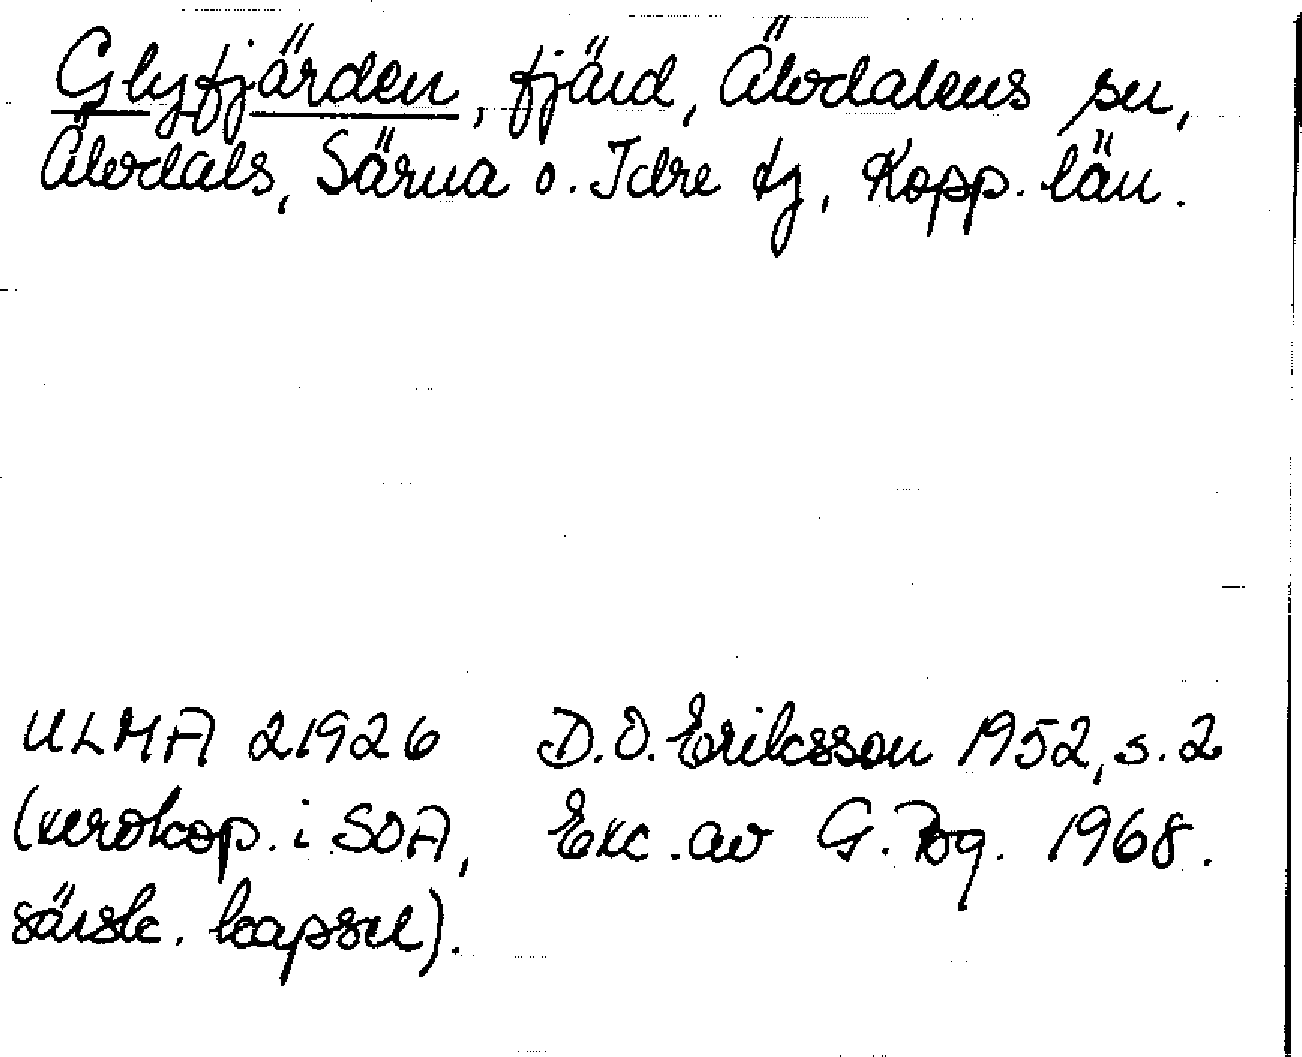 Glyfjärden, fjärd, Älvdalens sn,
Älvdals, Särna o. Idre tg, Kopp. län.
ULMA 21926 D.O. Eriksson 1952, s. 2
(xerokop. i SOA, Exc. av G. Pbg. 1968.
särsk. kapsel).